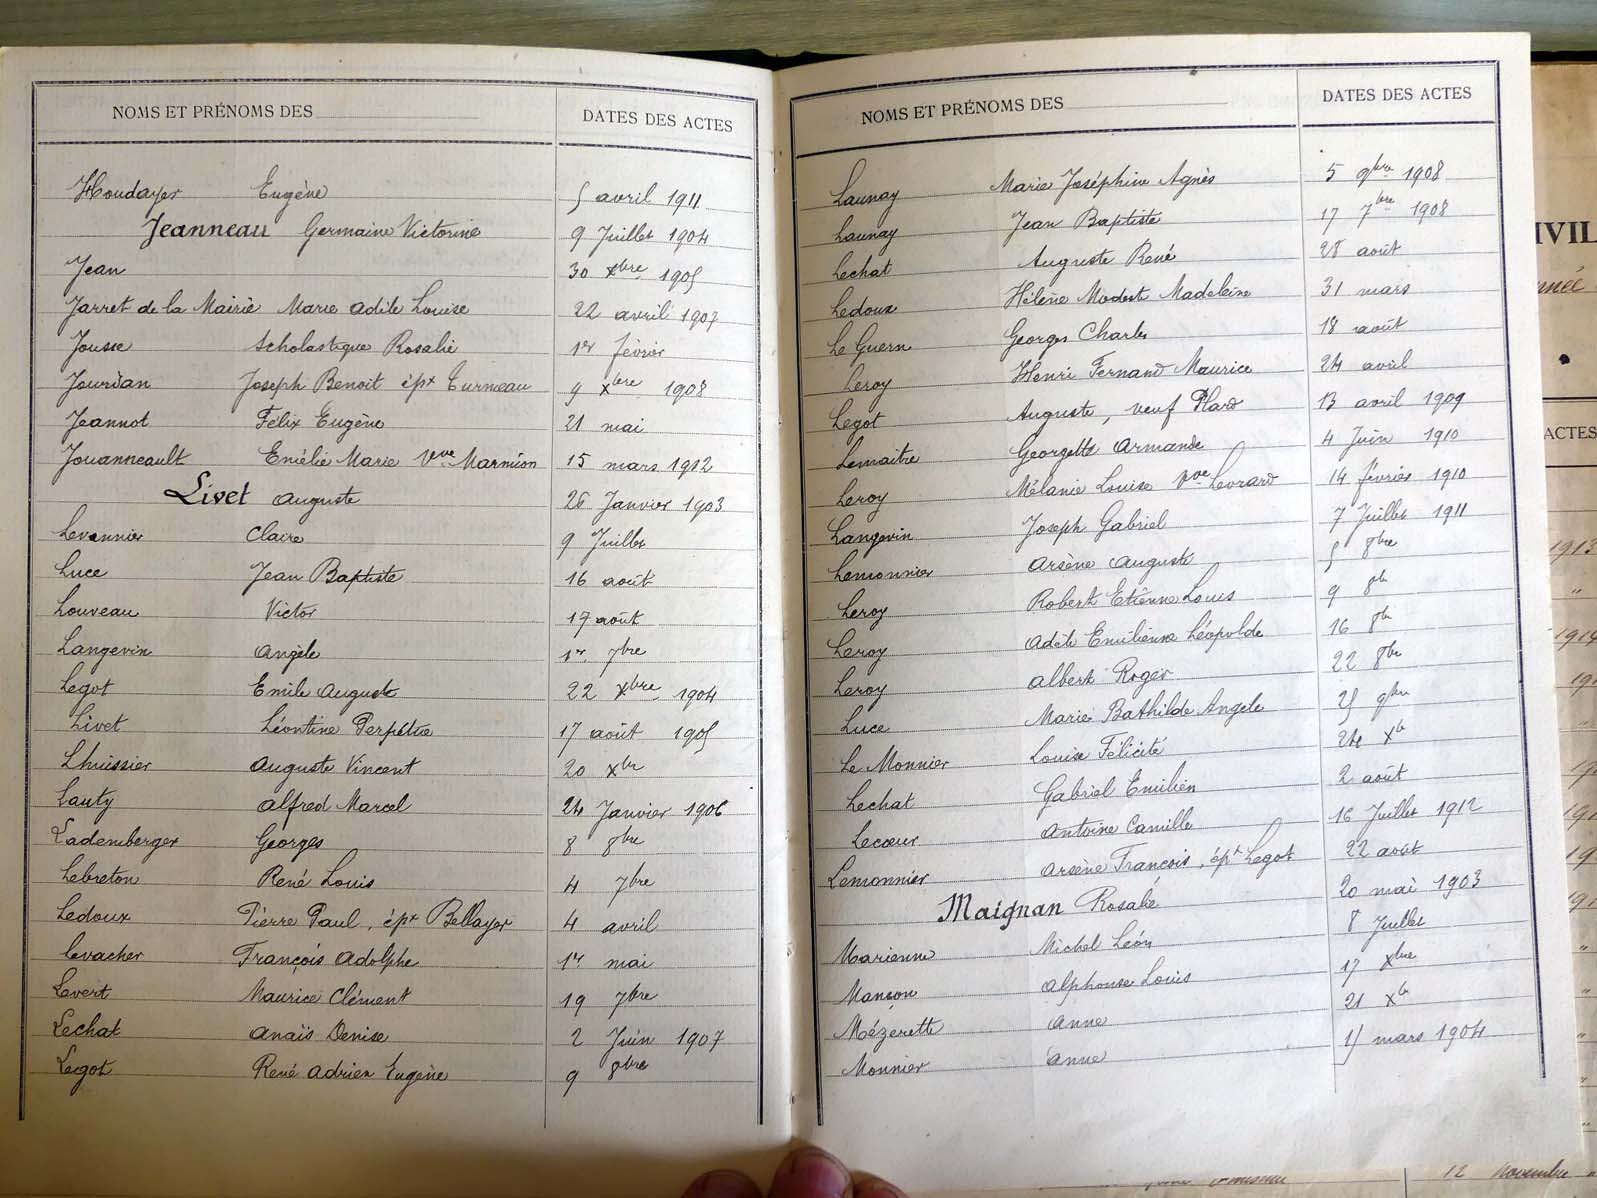 NOMS ET PRÉNOMS DES DATES DES ACTES
Houdayer Eugène 5 avril 1911
Jeanneau Germaine Victorine 9 Juillet 1904
Jean 30 Xbre 1905
Jarret de la Mairie Marie Adèle Louise 22 avril 1907
Jousse Scholastique Rosalie 1er février
Jourdan Joseph Benoit épx Turneau 9 Xbre 1908
Jeannot Félix Eugène 21 mai
Jouanneault Emélie Marie Vve Marmion 15 mars 1912
Livet Auguste 26 Janvier 1903
Levannier Claire 9 Juillet
Luce Jean Baptiste 16 août
Louveau Victor 17 août
Langevin Angèle 1er 7bre
Legot Emile Auguste 22 Xbre 1904
Livet Léontine Perpétue 17 août 1905
Lhuissier Auguste Vincent 20 Xbre
Lauty Alfred Marcel 24 Janvier 1906
Lademberger Georges 8 8bre
Lebreton René Louis 4 7bre
Ledoux Pierre Paul, épx Bellayer 4 avril
Levacher François Adolphe 1er mai
Levert Maurice Clément 19 7bre
Lechat Anaïs Denise 2 Juin 1907
Legot René Adrien Eugène 9 8bre
NOMS ET PRÉNOMS DES DATES DES ACTES
Launay Marie Joséphine Agnès 5 9bre 1908
Launay Jean Baptiste 17 7bre 1908
Lechat Auguste René 28 août
Ledoux Hélène Modeste Madeleine 31 mars
Le Guern Georges Charles 18 août
Leroy Henri Fernand Maurice 24 avril
Legot Auguste, veuf Plard 13 avril 1909
Lemaitre Georgette Armande 4 Juin 1910
Leroy Mélanie Louise Vve Levrard 14 février 1910
Langevin Joseph Gabriel 7 Juillet 1911
Lemonnier Arsène Auguste 5 8bre
Leroy Robert Etienne Louis 9 8bre
Leroy Adèle Emilienne Léopolde 16 8bre
Leroy Albert Roger 22 8bre
Luce Marie Bathilde Angele 25 9bre
Le Monnier Louise Félicité 24 Xbre
Lechat Gabriel Emilien 2 août
Lecœur Antoine Camille 16 Juillet 1912
Lemonnier Arsène François, épx Legot 22 août
Maignan Rosalie 20 mai 1903
Marienne Michel Léon 8 Juillet
Manson Alphonse Louis 17 Xbre
Mézerette Anne 21 Xbre
Monnier Anne 15 mars 1904
IVIL
ACTES
1913
1914
12 Novembre